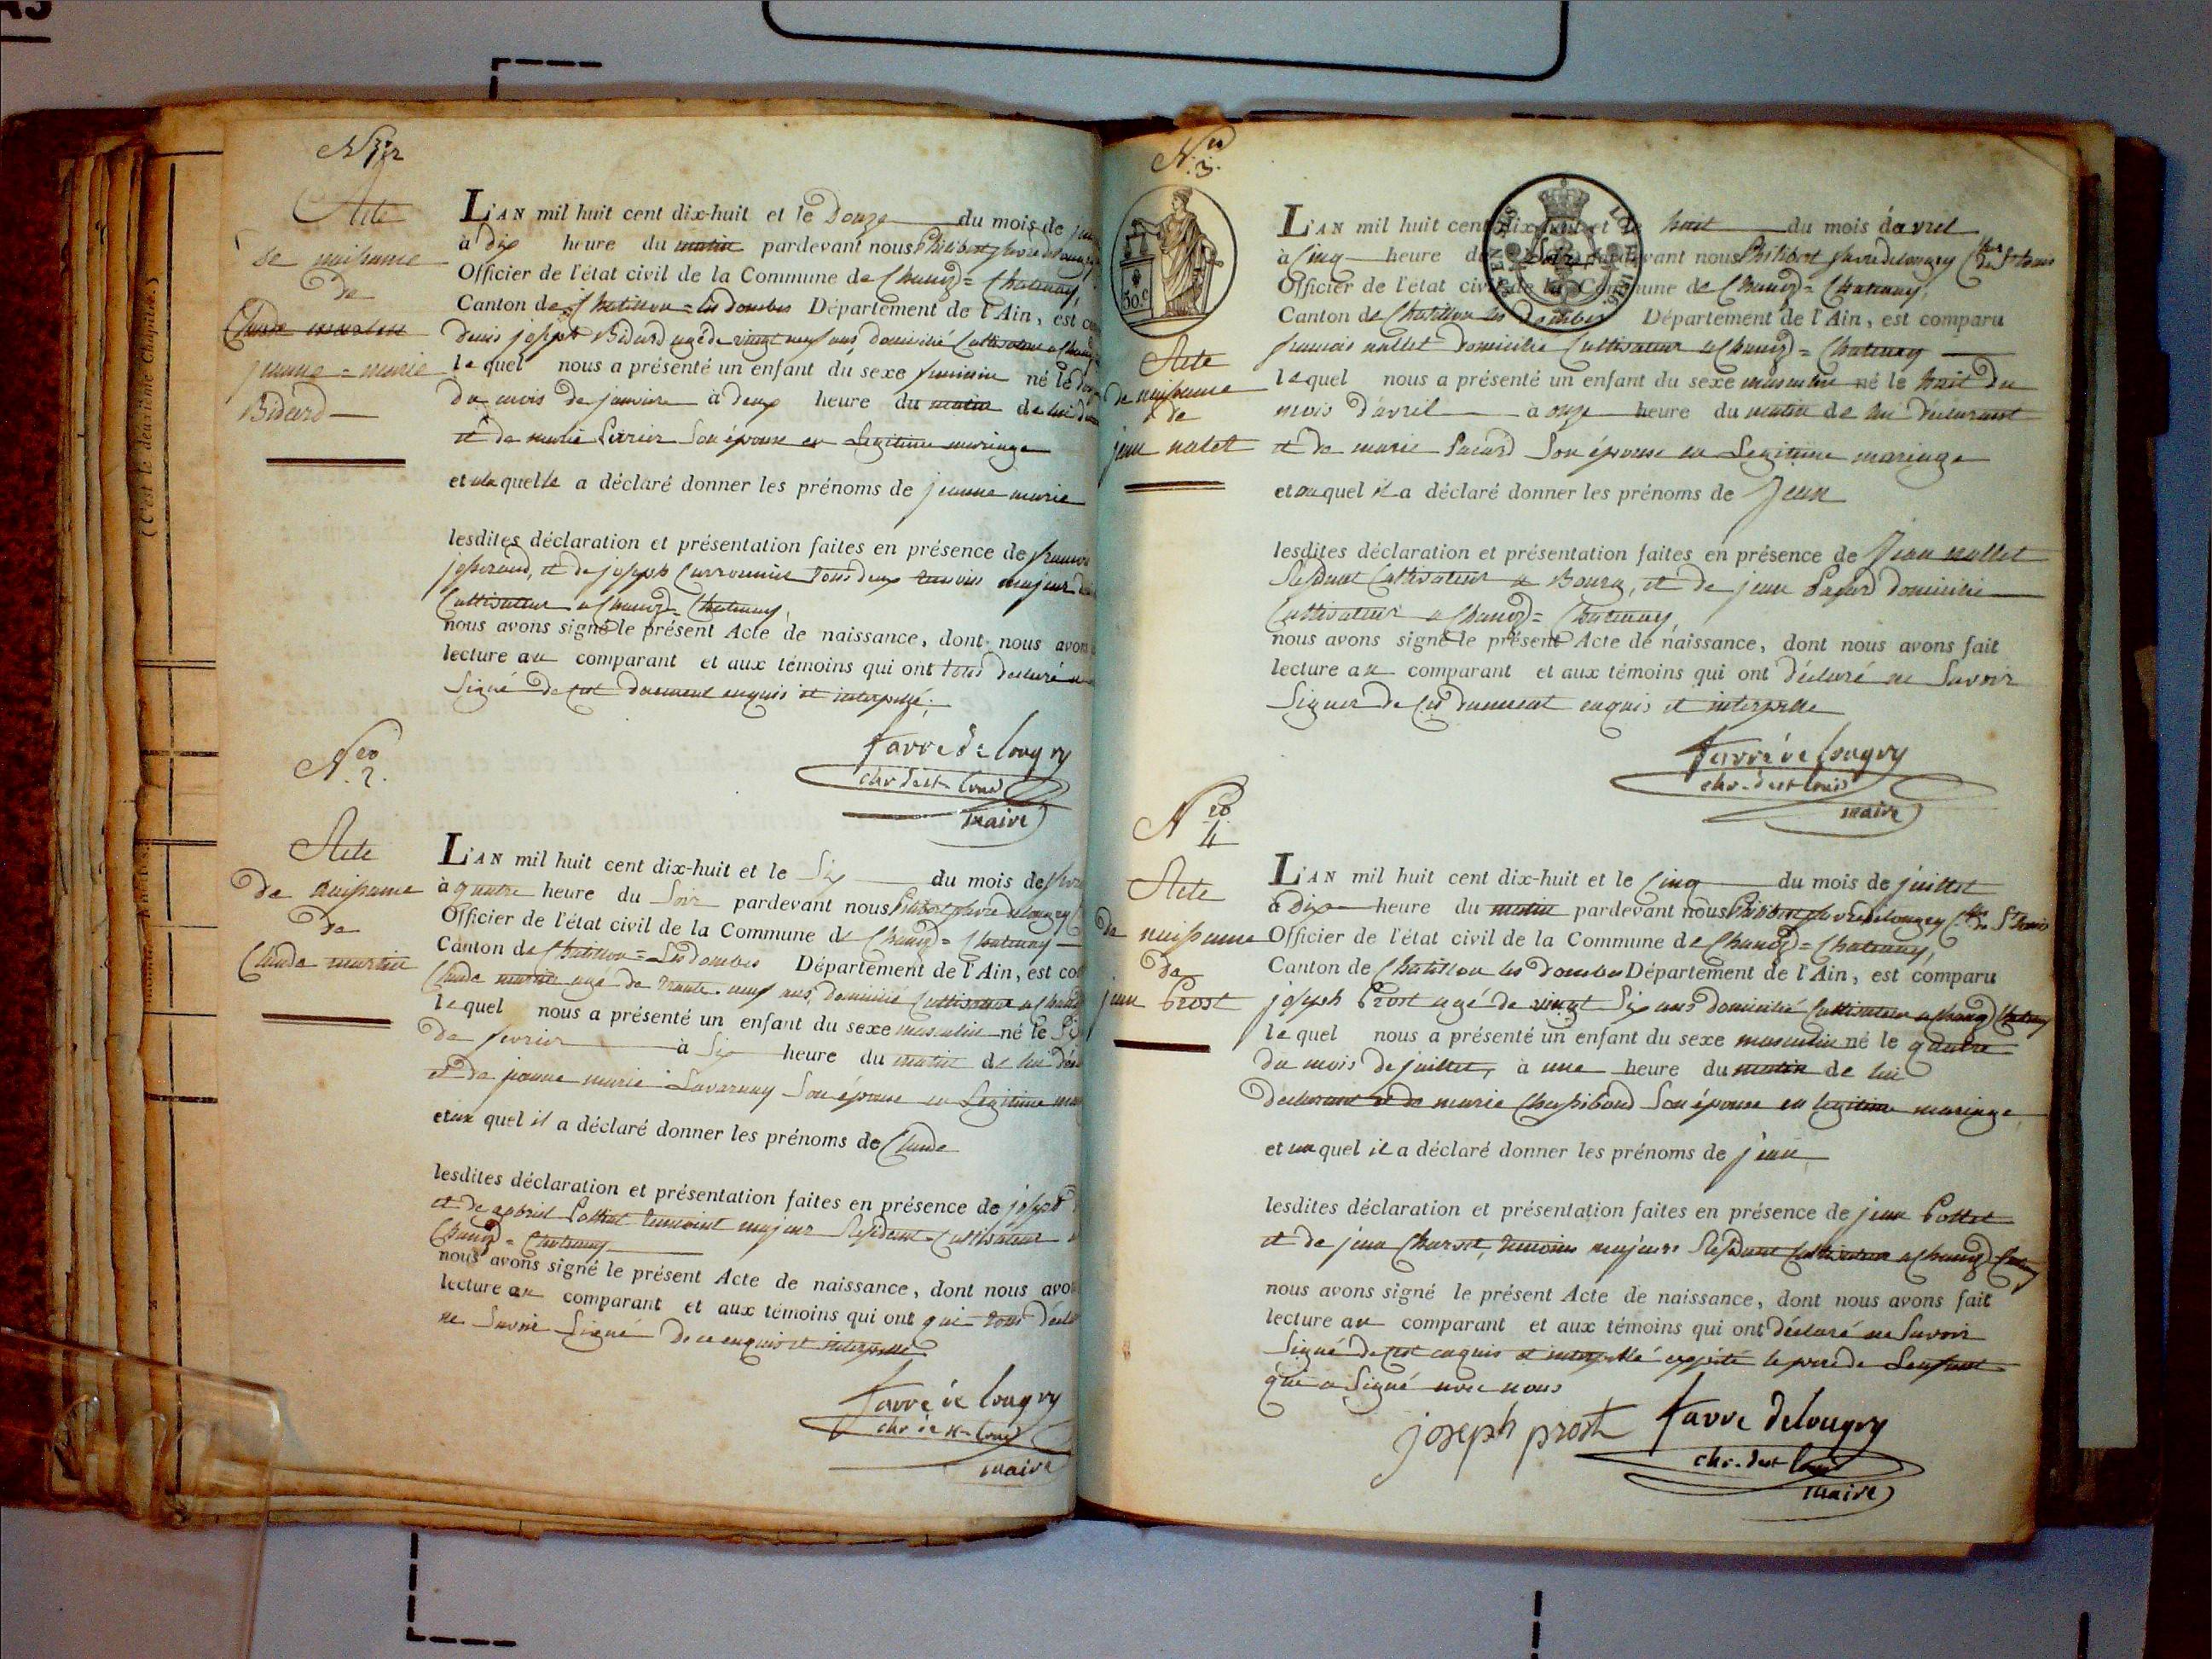 N.er
Acte
de naissance
de
Claude martin
jeanne = marie
Bidard
L'AN mil huit cent dix-huit et le Douze du mois de
à Dix heure du matin pardevant nous Philibert favre de
Officier de l'état civil de la Commune de
Canton de Chatillon = les dombes Département de l'Ain, est
denis joseph Bidard agé de vingt neuf ans, domicilié Cultivateur a
lequel nous a présenté un enfant du sexe feminin né le
du mois de janvier à deux heure du matin de lui
et de marie son épouse en Legitime mariage
et a laquelle a déclaré donner les prénoms de jeanne marie
lesdites déclaration et présentation faites en présence de
et de joseph tous deux temoins majeur
Cultivateur a
nous avons signé le présent Acte de naissance, dont nous avons
lecture au comparant et aux témoins qui ont tous declaré
Signé de duement enquis et interpellé.
favre de longry
chr de st louis
maire
N.eo 2.
Acte
de naissance
de
Claude martin
L'AN mil huit cent dix-huit et le Six du mois de
à quatre heure du Soir pardevant nous Philibert favre delongry
Officier de l'état civil de la Commune de
Canton de Chatillon = Les dombes Département de l'Ain, est
Claude martin agé de trente neuf ans, domicilié Cultivateur a
lequel nous a présenté un enfant du sexe masculin né le Six
de fevrier à Six heure du matin de lui
et de jeanne marie Lavarenay Son épouse en Legitime
et au quel il a déclaré donner les prénoms de Claude
lesdites déclaration et présentation faites en présence de joseph
et de gabriel temoins majeur Résident Cultivateur
nous avons signé le présent Acte de naissance, dont nous
lecture au comparant et aux témoins qui ont qui tous
ne Savoir Signé de ce enquis et interpellé
favre de longry
chr de st louis
maire
N.eo 3.
30 c
Acte
de naissance
de
jean nalet
L'AN mil huit cent dix-huit et le huit du mois d'avrel
à Cinq heure du Soir pardevant nous Philibert favre delongry Cher de St Louis
Officier de l'état civil de la Commune de
Canton de Chatillon les dombes Département de l'Ain, est comparu
francois nallet domicilié Cultivateur a
lequel nous a présenté un enfant du sexe masculin né le huit du
mois d'avril à onze heure du matin de lui déclarant
et de marie Pacard Son épouse en Legitime mariage
et au quel il a déclaré donner les prénoms de Jean
lesdites déclaration et présentation faites en présence de Jean nallet
Résident Cultivateur a Bourg, et de jean domicilié
Cultivateur a
nous avons signé le présent Acte de naissance, dont nous avons fait
lecture au comparant et aux témoins qui ont déclaré ne Savoir
Signer de duement enquis et interpelle
favre de longry
chr. de st louis
maire
N.eo 4
Acte
de naissance
de
jean Prost
L'AN mil huit cent dix-huit et le Cinq du mois de juillet
à dix heure du matin pardevant nous Philibert favre delongry Cher de St Louis
Officier de l'état civil de la Commune de
Canton de Chatillon les dombes Département de l'Ain, est comparu
joseph Prost agé de vingt Six ans domicilié Cultivateur a
lequel nous a présenté un enfant du sexe masculin né le quatre
du mois de juillet, à une heure du matin de lui
declarant et de marie Chassiboud Son épouse en legitime mariage
et au quel il a déclaré donner les prénoms de jean
lesdites déclaration et présentation faites en présence de jean Pollet
et de jean temoins majeurs Résident Cultivateur a
nous avons signé le présent Acte de naissance, dont nous avons fait
lecture au comparant et aux témoins qui ont déclaré ne Savoir
Signé de cet enquis et interpellé excepté le pere de Lenfant
qui a Signé avec nous
joseph prost favre delongry
chr. de st louis
maire
(C'est le deuxième Chapitre.)